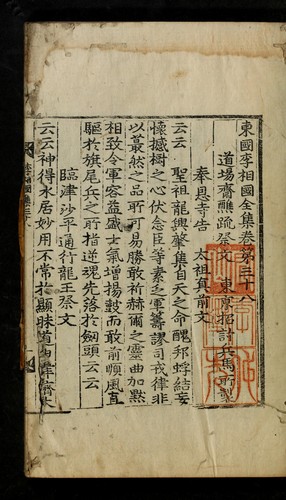 東國李相國全集卷第三十八
道場齋醮疏祭文 東京招討兵馬所製
奉恩寺告 太祖真前文
云云 聖祖龍興肇集自天之命醜邦蜉結妄
懷撼樹之心伏念臣等素乏軍籌謬司戎律非
以蕞然之品所可易勝敢祈赫爾之靈曲加黙
相致令軍容益盛士氣增揚鼓而敢前順風直
驅於旗尾兵之所指逆魂先落於劒頭云云
臨津沙平通行龍王祭文
云云神得水居妙用不常於顯昧